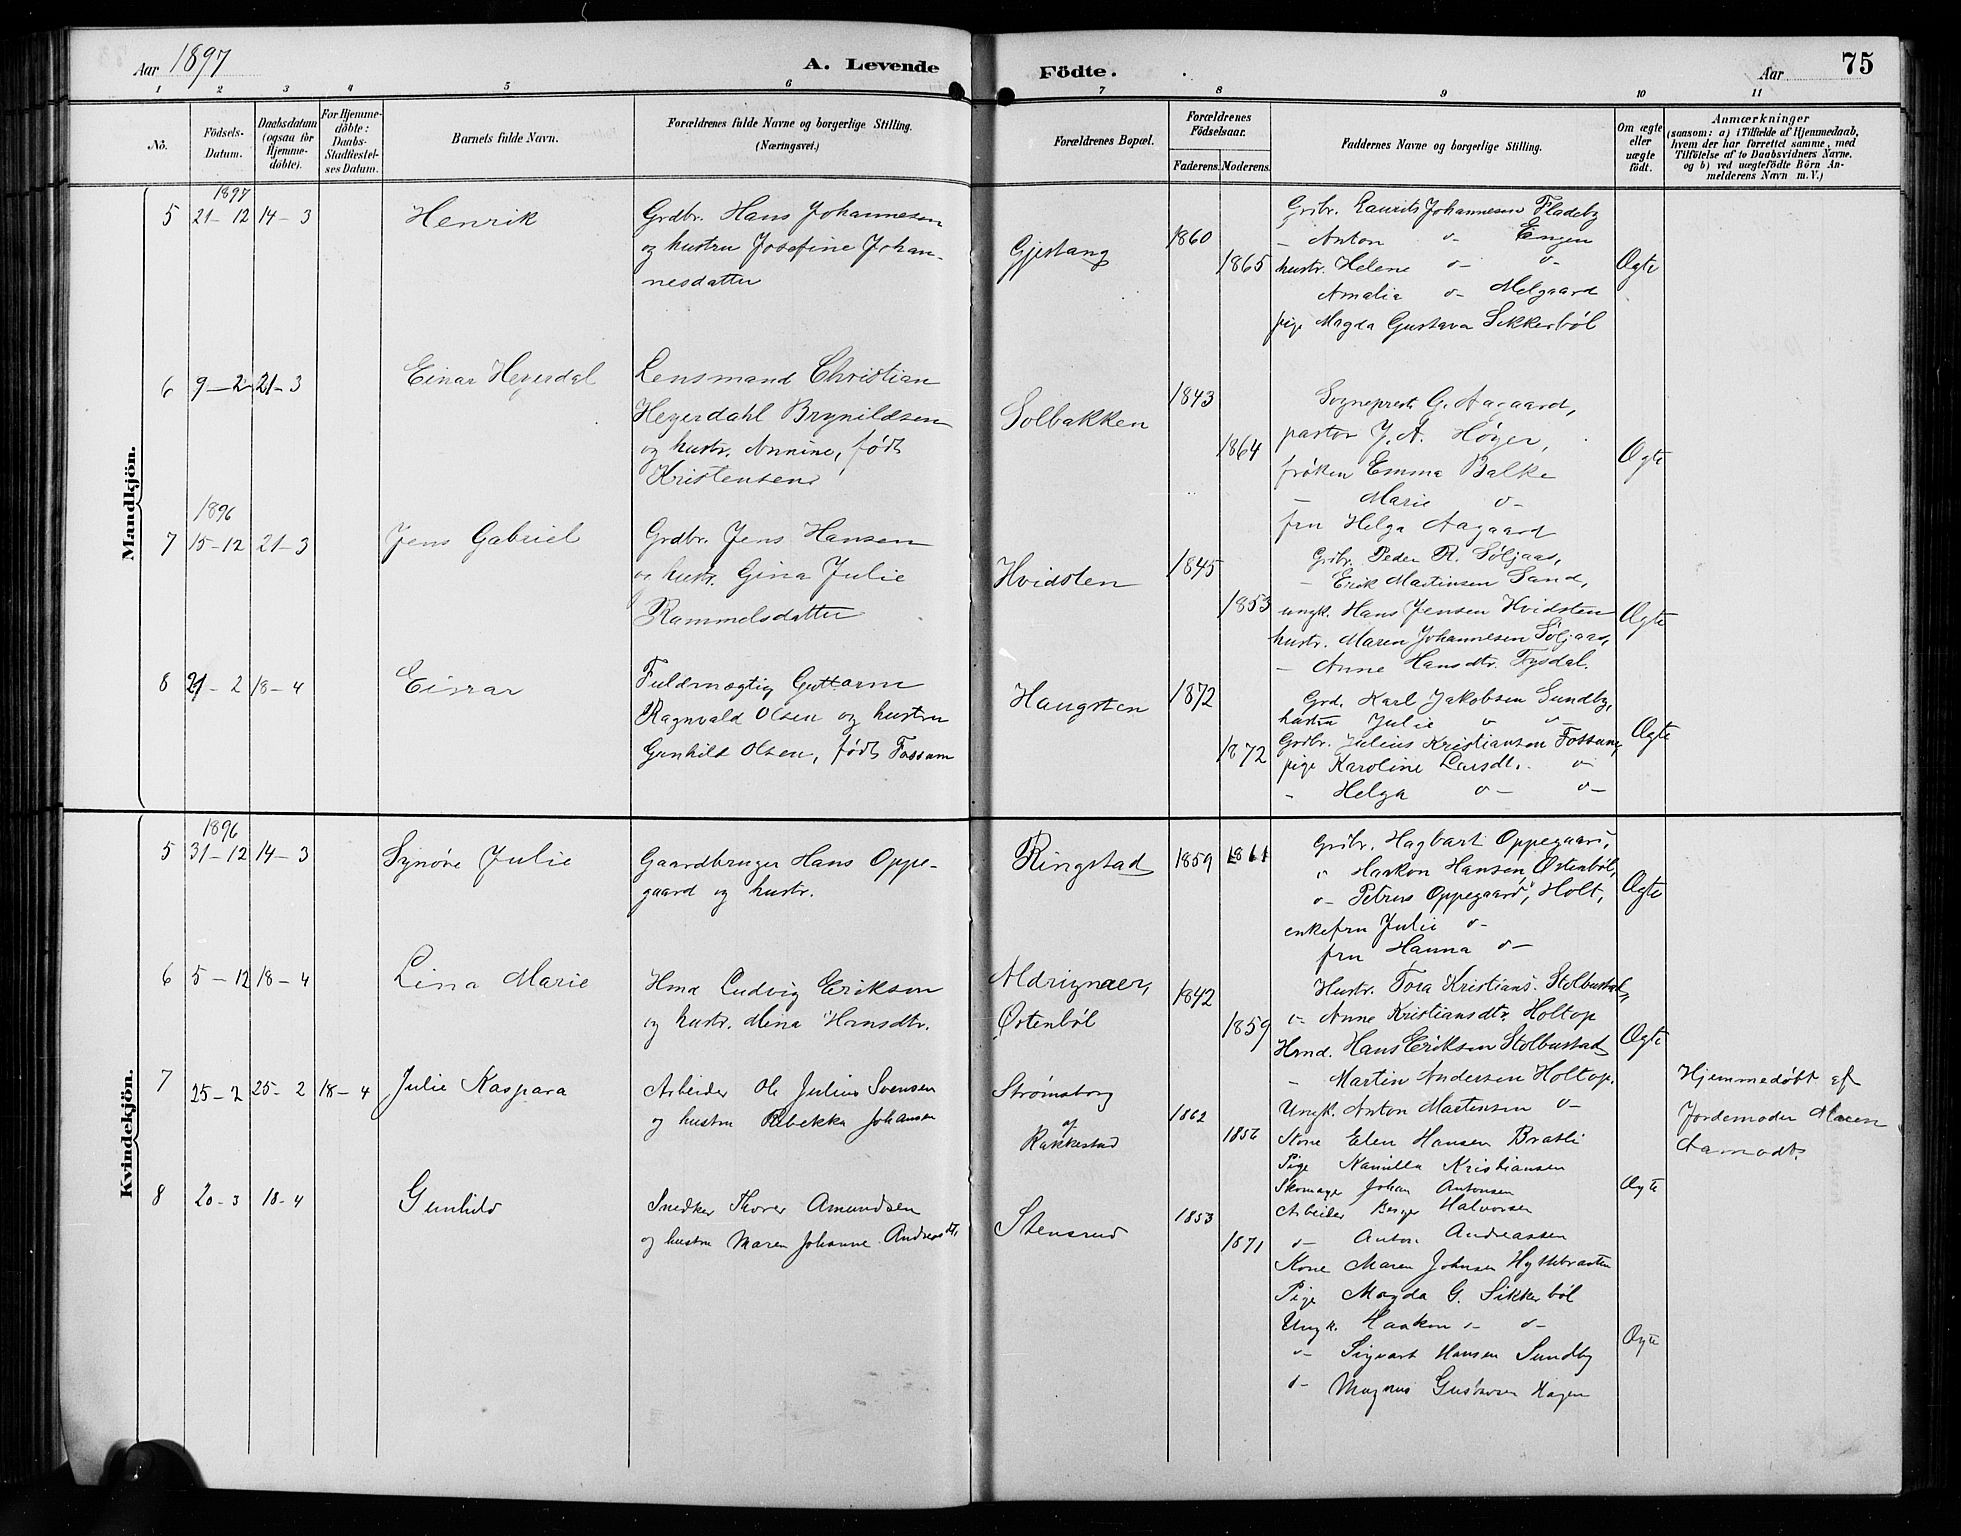 Aar 1897
A. Levende
Födte.
Aar
75
1 2 3 4 5 6 7 8 9 10 11
No.
Födsels-
Datum.
Daabsdatum
(ogsaa för
Hjemme-
döbte).
For Hjemme-
döbte:
Daabs-
Stadfæstel-
ses Datum.
Barnets fulde Navn.
Forældrenes fulde Navne og borgerlige Stilling.
(Næringsvei.)
Forældrenes Bopæl.
Forældrenes
Födselsaar.
Faderens. Moderens.
Faddernes Navne og borgerlige Stilling.
Om ægte
eller
uægte
födt.
Anmærkninger
(saasom: a) i Tilfælde af Hjemmedaab,
hvem der har forrettet samme, med
Tilföielse af to Daabsvidners Navne.
og b) ved uegtefödte Börn An-
melderens Navn m. V.)
Mandkjön.
1897
5 21-12 14-3
Henrik
Grdbr. Hans Johannesen
og hustru Josefine Johan-
nesdatter
Gjestang
1860
1865
Grbr. Laurits Johannesen Fladeby
- Anton o- Engen
hustr. Helene o- o-
Amalia o- Melgaard
pige Magda Gustava Sikkerbøl
Ægte
6 9-2 21-3
Einar Heyerdal
Lensmand Christian
Heyerdahl Brynildsen
og hustr. Annine, født
Kristensen
Solbakken
1843
1864
Sogneprest G. Aagaard,
pastor J. A. Høyer,
frøken Emma Balke
- Marie o-
fru Helga Aagaard
Ægte
1896
7 15-12 21-3
Jens Gabriel
Grdbr. Jens Hansen
og hustr. Gina Julie
Rammelsdatter
Hvidsten
1845
1853
Grbr. Peder R. Søljaas,
- Erik Martinsen Sand,
ungk. Hans Jensen Hvidsten
hustr. Maren Johannesen Søljaas,
- Anne Hansdtr. Fysdal.
Ægte
8 21-2 18-4
Einar
Fuldmægtig Guttorm
Ragnvald Olsen og hustru
Gunhild Olsen, født Fossum
Haugsten
1872
1872
Grd. Karl Jakobsen Sundby,
hustru Julie o o-
Grdbr. Julius Kristiansen Fossum,
pige Karoline Larsdt. o-
- Helga o- o-
Ægte
Kvindekjön.
1896
5 31-12 14-3
Synøve Julie
Gaardbruger Hans Oppe-
gaard og hustr.
Ringstad
1859 1861
Grdbr. Hagbart Oppegaard,
o- Haakon Hansen, Østenbøl,
o- Petrus Oppegaard, Holt,
enkefru Julie o-
fru Hanna o-
Ægte
6 5-12 18-4
Lina Marie
Hmd Ludvig Eriksen
og hustr. Mina Hansdtr.
Østenbøl
1842
1859
Hustr. Tora Kristians. Stolbustad,
o- Anne Kristiansdtr. Holtop
Hmd. Hans Eriksen Stolbustad
- Martin Andersen Holtop.
Ungk. Anton Martensen o-
Ægte
7 25-2 25-2 18-4
Julie Kaspara
Arbeider Ole Julius Svensen
og hustru Rebekka Johansen
Strømsborg
af
Rakkestad
1862
1856
Kone Elen Hansen Braali
Pige Kamilla Kristiansen
Skomager Johan Antonsen
Arbeider Berger Halvorsen
o- Anton Andreassen
Ægte
Hjemmedøbt af
Jordemoder Maren
Aamodt.
8 20-3 18-4
Gunhild
Snedker Thorer Amundsen
og hustru Maren Johanne Andreasdt.
Stensrud
1853
1871
Kone Maren Johnsen Hyttebraaten
Pige Magda G. Sikkerbøl
Ungk. Haakon o- o-
o- Sigvart Hansen Sundby
o- Magnus Gustavsen Hagen
Ægte